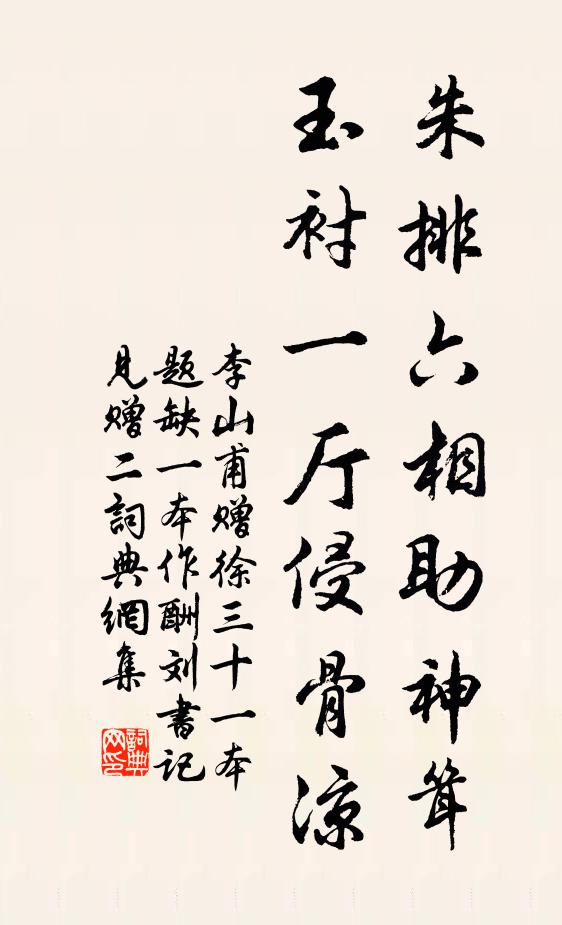 朱排六相助神耸
玉衬一厅侵骨凉
李山甫赠徐三十一本
题缺一本作酬刘書记
见赠二詞典網集
詞典网印